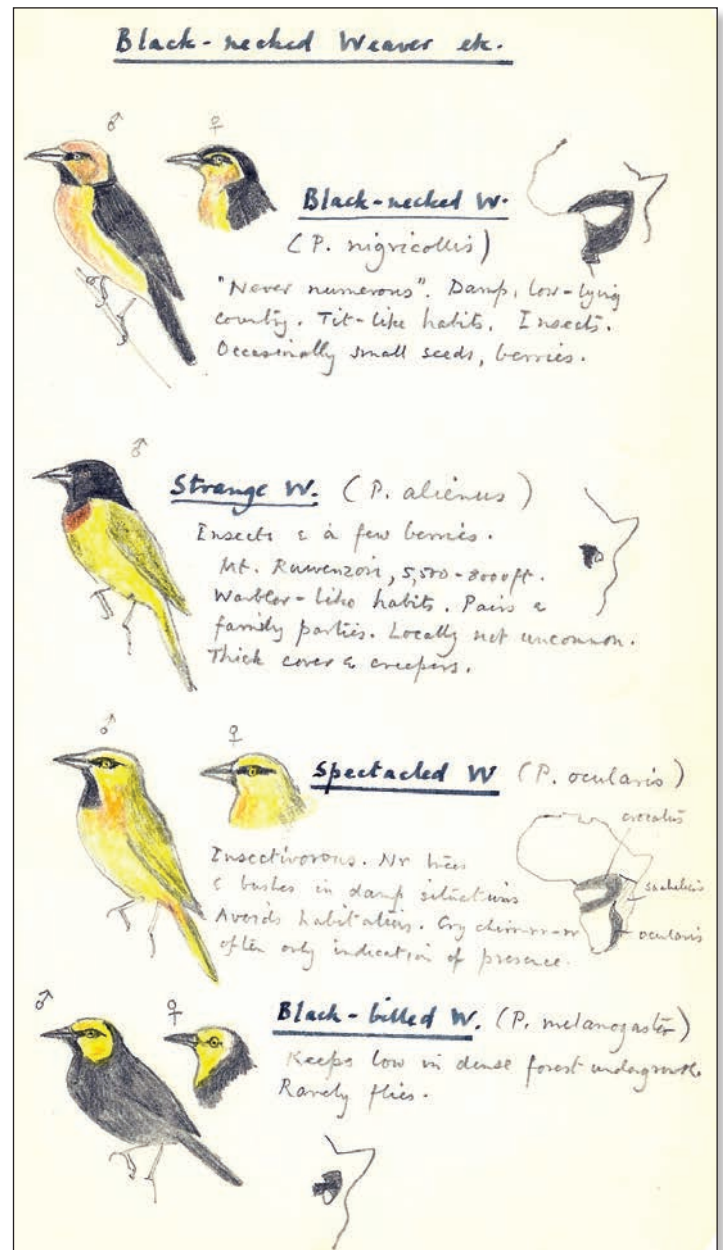 Black-necked Weaver etc.
♂ ♀
Black-necked W.
(P. nigricollis)
"Never numerous". Damp, low-lying
country. Tit-like habits. Insects.
Occasionally small seeds, berries.
♂
Strange W. (P. alienus)
Insects & a few berries.
Mt. Ruwenzori, 5,500-8000ft.
Warbler-like habits. Pairs &
family parties. Locally not uncommon.
Thick cover & creepers.
♂ ♀
Spectacled W (P. ocularis)
crocatus
suahelicus
ocularis
Insectivorous. Nr trees
& bushes in damp situations
Avoids habitations. Cry
often only indication of presence.
♂ ♀
Black-billed W. (P. melanogaster)
Keeps low in dense forest undergrowth.
Rarely flies.